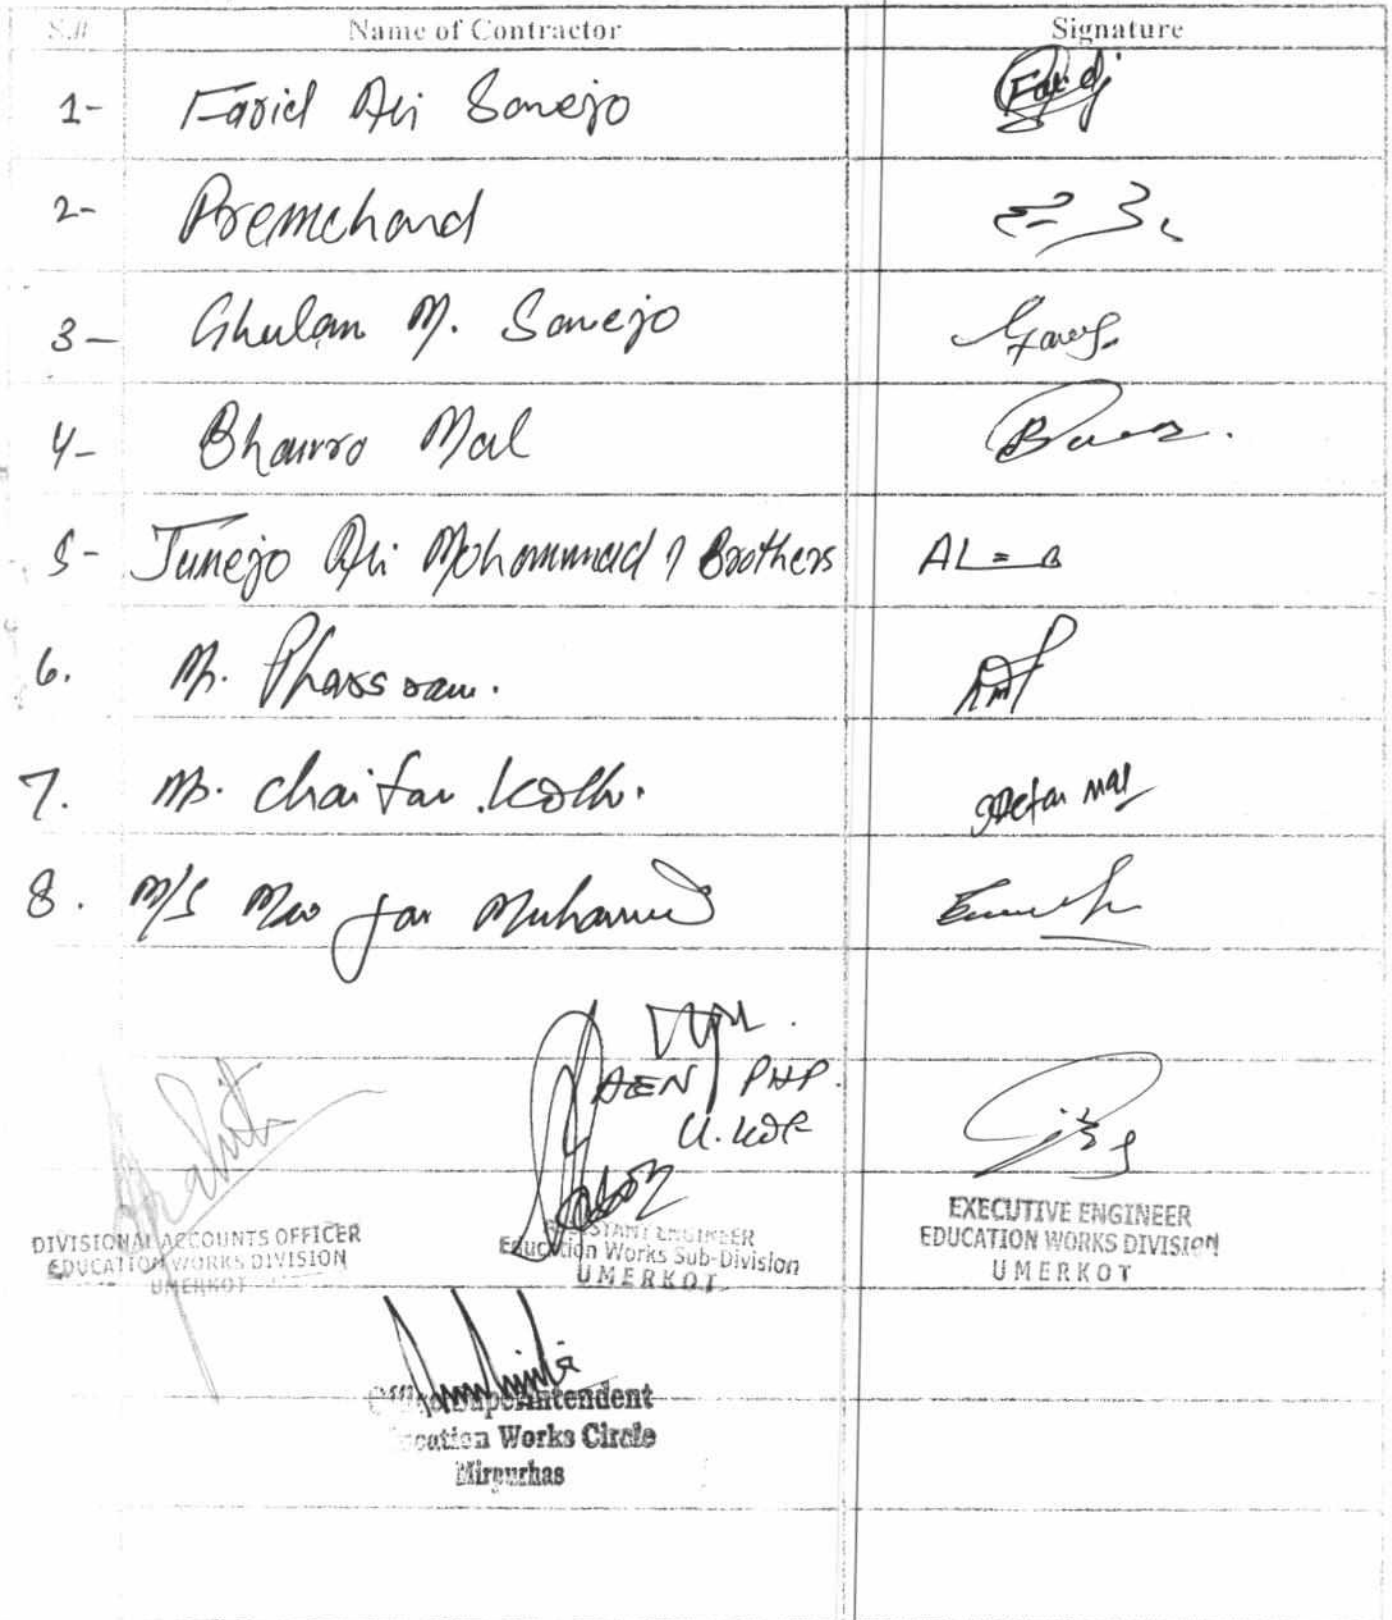 S.# Name of Contractor Signature
1- Farid Ali Sanejo Farid
2- Premchand
3- Ghulam M. Sanejo
4- Bhawro Mal
5- Junejo Ali Mohammad & Brothers AL = B
6. M. Pharssram.
7. Mr. Chaitan Kolhi.
8. M/S Jan Muhammad
AEN PHP.
U. Kot
DIVISIONAL ACCOUNTS OFFICER
EDUCATION WORKS DIVISION
UMERKOT
ASSISTANT ENGINEER
Education Works Sub-Division
UMERKOT
EXECUTIVE ENGINEER
EDUCATION WORKS DIVISION
UMERKOT
Office Superintendent
Education Works Circle
Mirpurhas